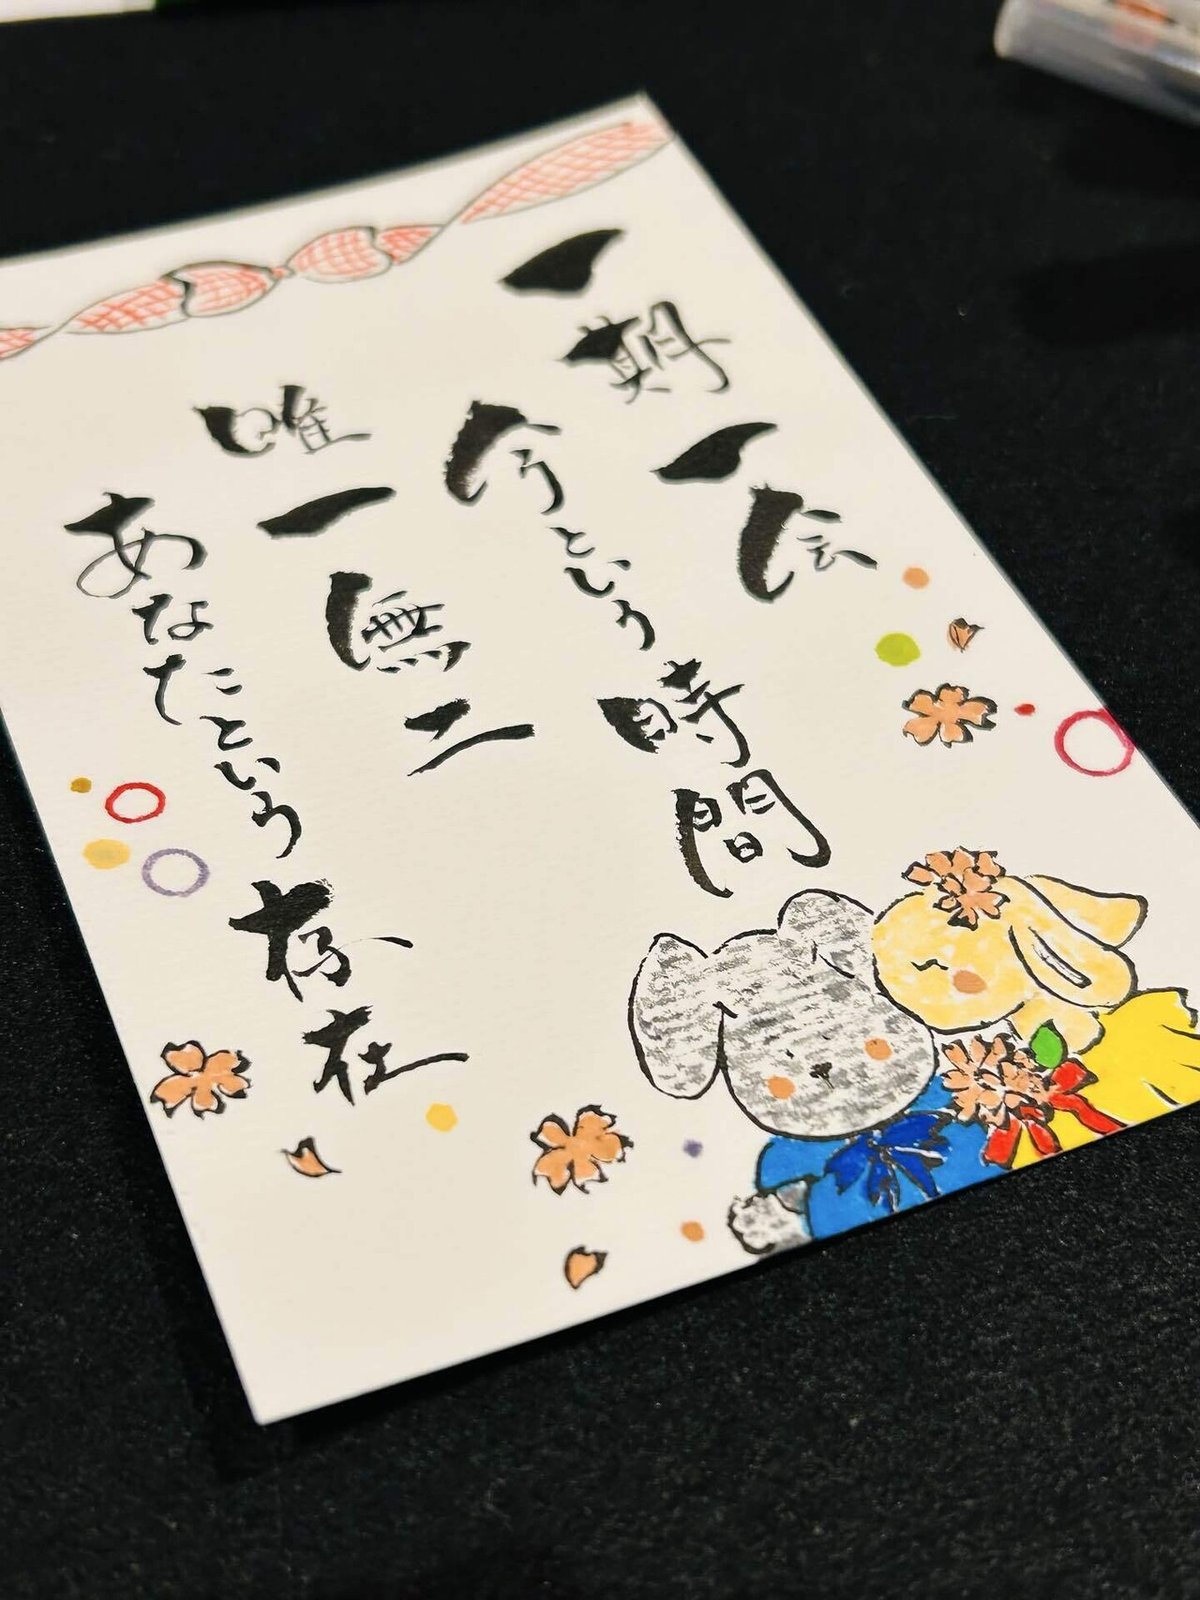 一期一会
今という時間
唯一無二
あなたという存在